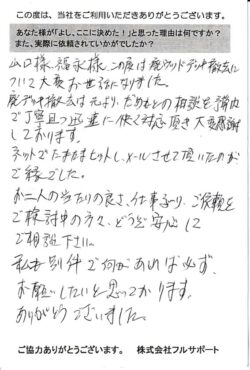 この度は、当社をご利用いただきありがとうございます。
あなた様が「よし、ここに決めた！」と思った理由は何ですか？
また、実際に依頼されていかがでしたか？
山口様、福永様、この度は廃ウッドデッキ撤去に
ついて大変お世話になりました。
廃デッキ撤去は元より、だめもとの相談を
丁寧且つ迅速に 対応頂き大変感謝
しております。
ネットでたまたまヒットし、メールさせて頂いたのが
ご縁でした。
お二人の当たりの良さ、仕事ぶり、ご依頼を
ご検討中の方々、どうぞ安心して
ご相談下さい。
私も別件で何かあれば必ず、
お願いしたいと思っております。
ありがとうございました。
ご協力ありがとうございます。 株式会社フルサポート